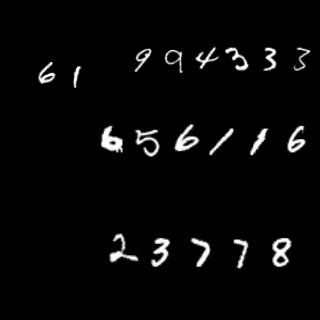 61 994333
656116
23778